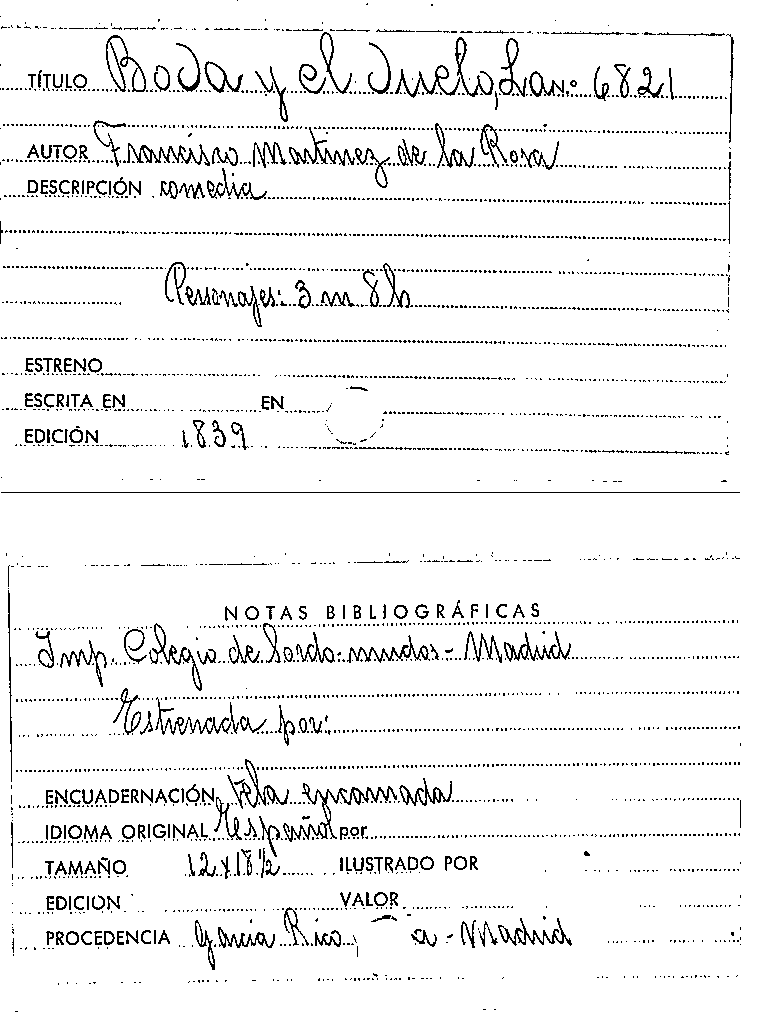 TÍTULO Boda y el duelo, La n.º 6821
AUTOR Francisco Martinez de la Rosa
DESCRIPCIÓN comedia
Personajes: 3 m 8 h
ESTRENO
ESCRITA EN EN
EDICIÓN 1839
NOTAS BIBLIOGRÁFICAS
Imp. Colegio de Sordo-mudos - Madrid
Estrenada por:
ENCUADERNACIÓN Tela encarnada
IDIOMA ORIGINAL Español por
TAMAÑO 12 x 18 ½ ILUSTRADO POR
EDICION VALOR
PROCEDENCIA García Rico, a - Madrid